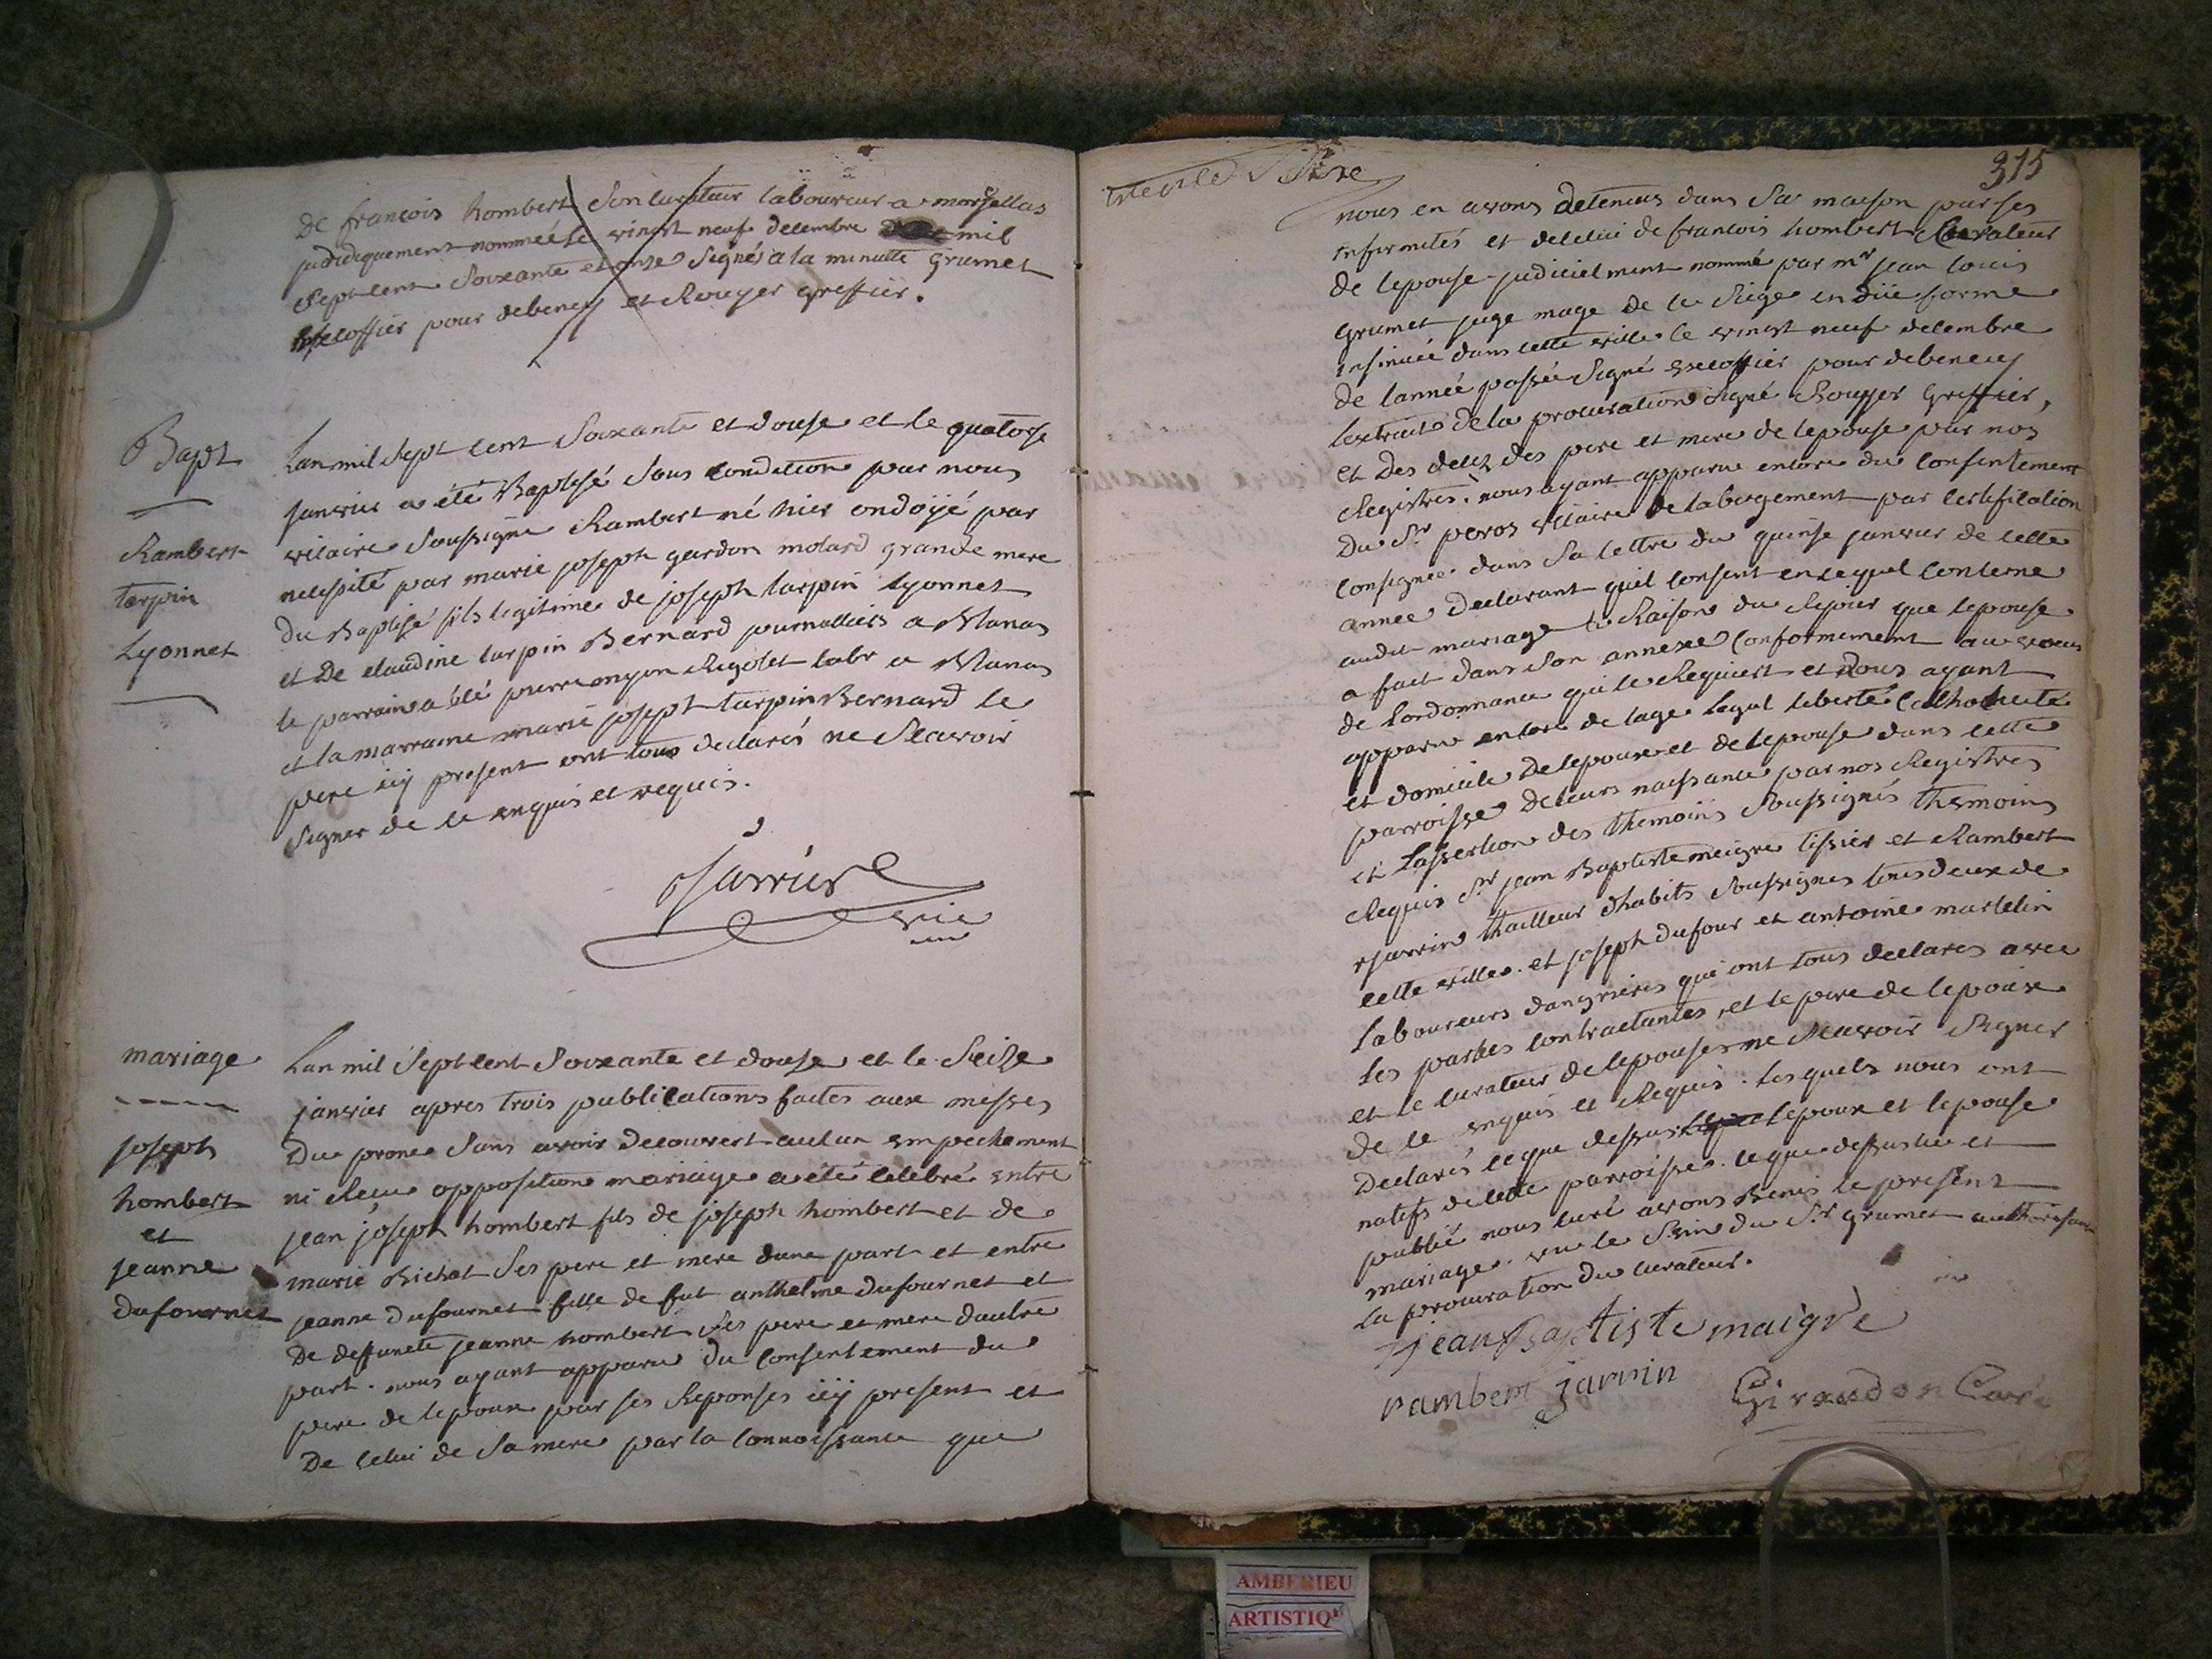 De francois hombert Son curateur laboureur a
judidiquement nommée le vingt neuf decembre mil
Sept cent Soixante et onze Signés a la minutte Grumet
pour debeney et Rouyer greffier.
Bapt
Rambert
tarpin
Lyonnet
Lan mil Sept cent Soixante et douse et le quatorse
janvier a été Baptisé Sous condition par nous
vicaire Soussigné Rambert né hier ondoÿé par
necessité par marie joseph gardon molard grande mere
Du Baptisé fils legitime de joseph tarpin Lyonnet
et De claudine tarpin Bernard journallier a Vanas
le parrain a été pierre Rigolet labr a Vanas
et la marraine marie joseph tarpin Bernard le
pere icy present ont tous declarés ne Scavoir
Signer de ce enquis et requis.
Jarrier
vic
mariage
joseph
hombert
et
jeanne
dufournet
Lan mil Sept cent Soixante et douse et le Seize
janvier apres trois publications faites aux messes
Du prone Sans avoir decouvert aucun empechement
ni Reçu opposition mariage a été celebré entre
jean joseph hombert fils de joseph hombert et de
marie Bichat Ses pere et mere dune part et entre
jeanne dufournet fille de fut anthelme dufournet et
De deffuncte jeanne hombert Ses pere et mere dautre
part. nous ayant apparu du consentement du
pere de lepoux par ses Reponses icy present et
De celui de Sa mere par la connoissance que
315
nous en avons detenus dans Sa maison par ses
infirmités et de celui de francois hombert Curateur
de lepouse judiciellment nommé par mr jean louis
Grumet juge mage de ce Siege en düe forme
insinuée dans cette ville le vingt neuf decembre
de lannée passée Signé pour debeney
lextrait de la procuration Signé Rouyer Greffier,
et Des deux des pere et mere de lepouse par nos
Registres. nous ayant apparu encore du consentement
Du Sr peros vicaire de labergement par certification
consignée dans Sa lettre du quinse janvier de cette
année Declarant quil consent en ce quil concerne
audit mariage a Raison du Sejour que lepouse
a fait dans Son annexe Conformement au voeu
de Lordonnance qui le Requiert et Nous ayant
apparu encore de lage legal liberté Catholicité
et domicile De lepoux et de lepouse dans cette
parroisse De leurs naissance par nos Registres
et Lassertion des themoins Soussignés themoins
Requis Sr jean Baptiste meigre tissier et Rambert
jarrin tailleur dhabits Soussignes tous deux de
cette ville. et joseph dufour et antoine martelin
Laboureurs dangrieres qui ont tous declarés avec
Les parties contractantes, et le pere de lepoux
et le curateur de lepouse ne Scavoir Signer
de ce enquis et Requis. Lesquels nous ont
Declarés ce que dessus lepoux et lepouse
natifs de cette parroisse. ce que dessus lu et
publié nous curé avons Benis le present
mariage. vu le Sein du Sr grumet authorisant
La procuration du curateur.
Jean Baptiste maigre
rambert jarrin
Giraudon Curé
AMBERIEU
ARTISTIQ